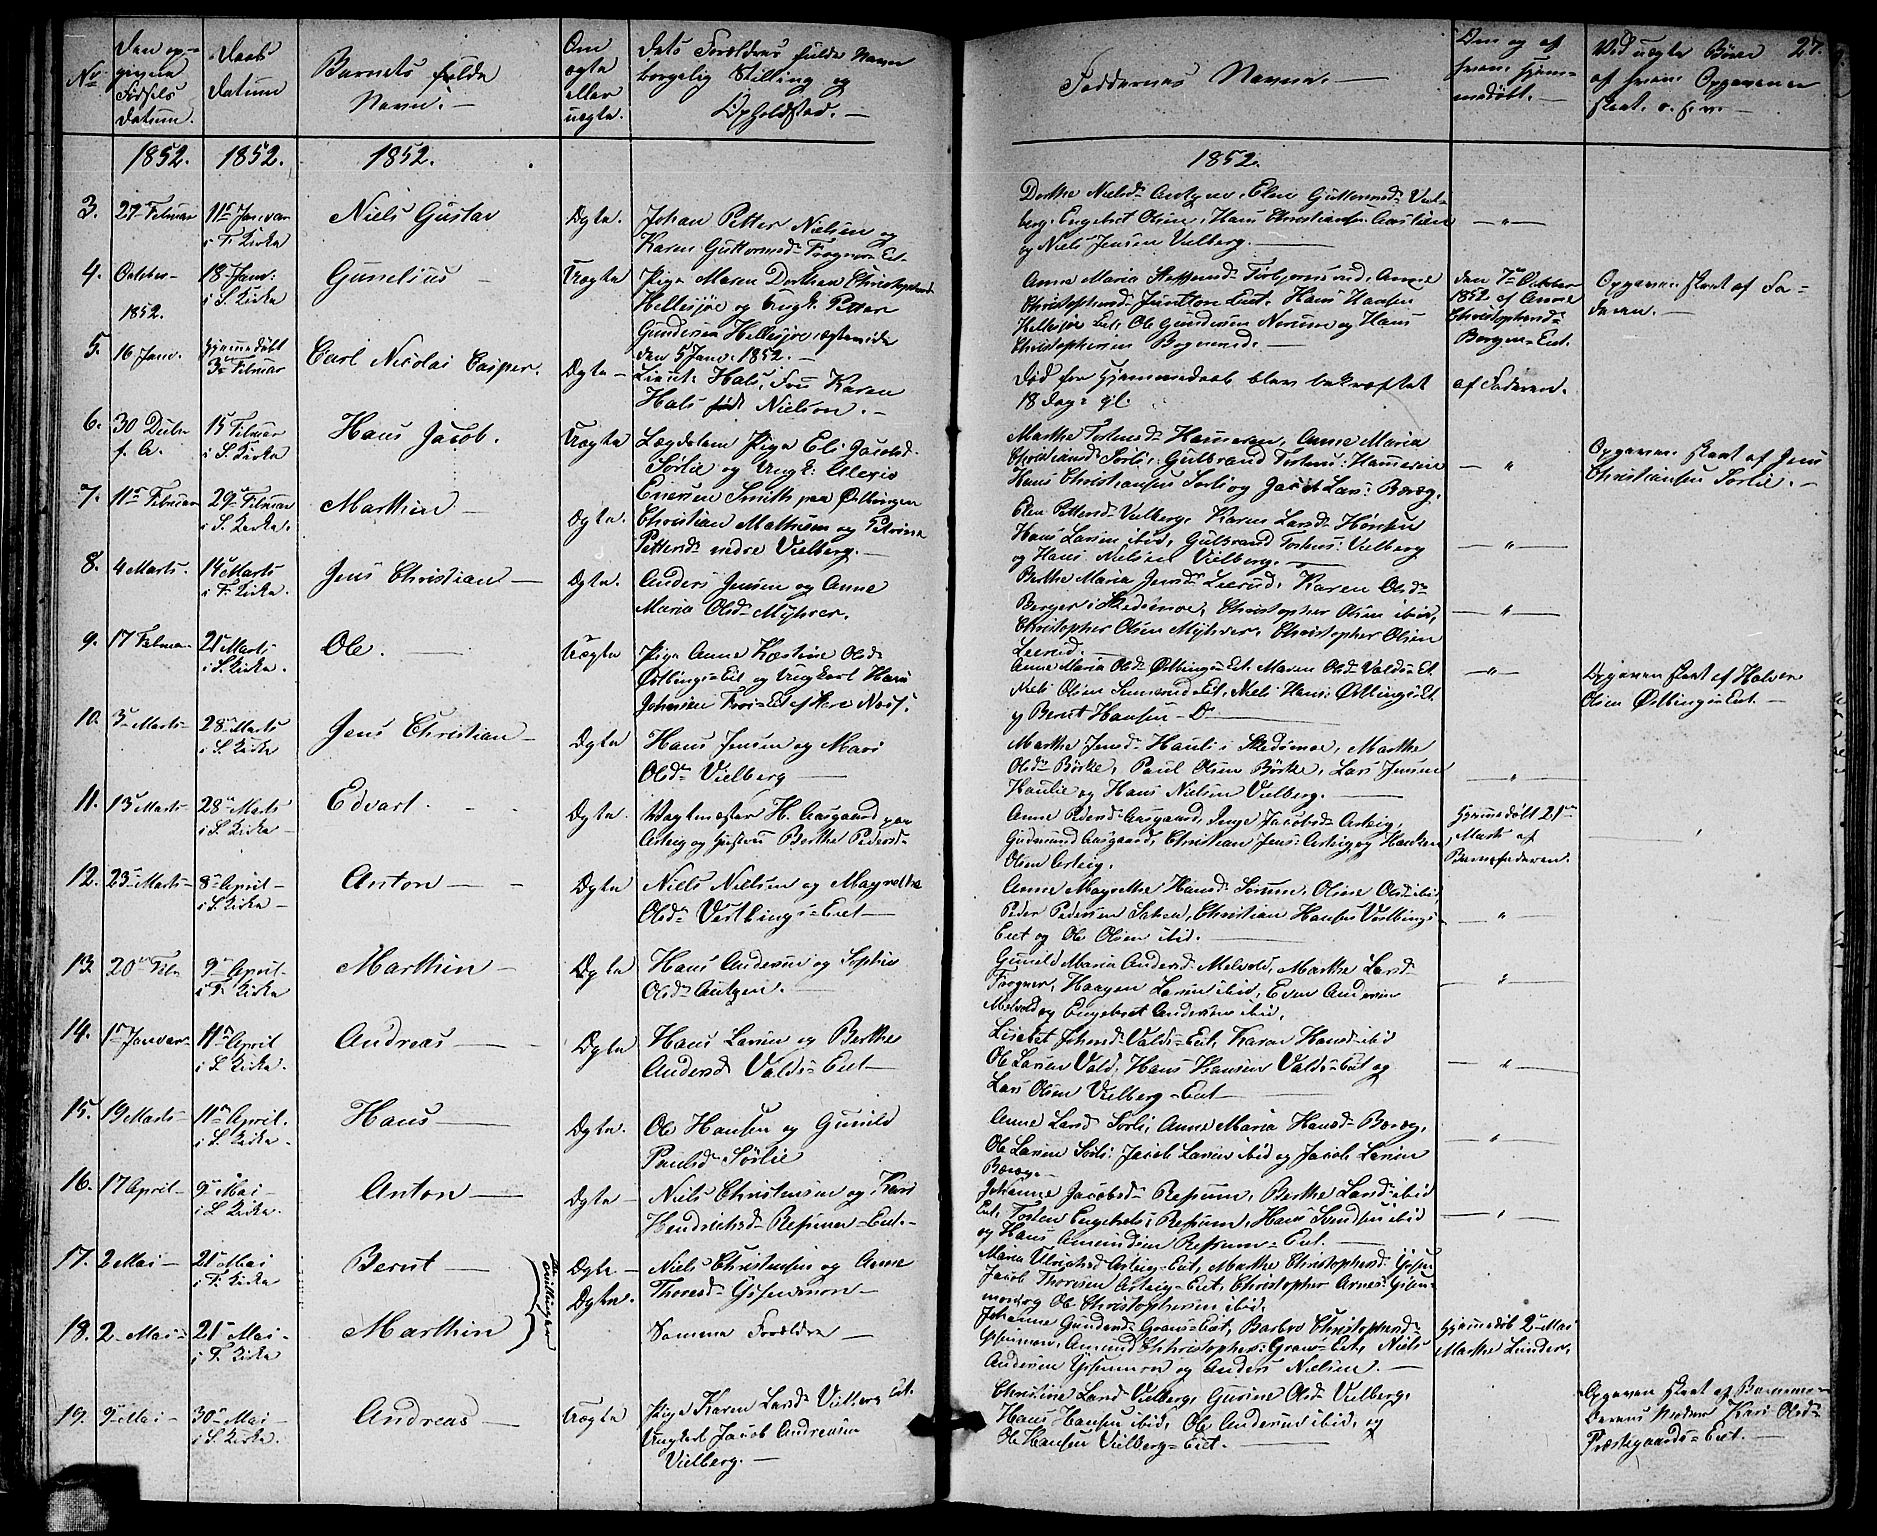 No
Den op-
givne
Fødsels
Datum.
Daabs
Datum
Barnets fulde
Navn.
Om
ægte
eller
uægte.
Dets Forældres fulde Navn
borgelig Stilling og
Opholdstad.
Faddernes Navne.
Om og af
hvem hjem-
medøbt.
Ved uægte Børn
af hvem Opgaven er
skeet. o. s. v.
27.
1852. 1852. 1852. 1852.
3. 27 Februar
11te Januar
i F. Kirke
Niels Gustav
Ægte.
Johan Petter Nielsen og
Karen Guttormsd Frogner Eet.
Berg, Engebret Olsen, Hans Christiansen
og Niels Jensen Vielberg.
4. October
1852.
18 Janr:
i S. Kirke
Gunelius
Uægte
Pige Maren Dorthea Christophersd
Hellesjøe og Ungk. Petter
Gundersen Hellesjøe, ægteviede
den 5 Janr. 1852.
Anne Maria Steffensd Torbjørnsrud, Anne
Christophersd Eiet. Hans Hansen
Hellesjøe Eet, Ole Gundersen Norum og Hans
Christophersen Bogerud.
den 7de October
1852 af Anne
Christophersd
Borgen Eet.
Opgaven skeet af Fa-
deren.
5. 16 Janr.
hjemmedøbt
3die Februar
Carl Nicolai Casper.
Ægte
Lieut. Hals, Frue Karen
Hals født Nielson.
Død før Hjemmedaab blev bekræftet
18 Dage gl.
af Faderen.
6. 30 Decbr
f. A.
15 Februar
i S. Kirke
Hans Jacob.
Uægte
Lægdslem Pige Eli Jacobsd
Sørlie og Ungk. Alexis
Enersen Smith paa Østbyngen
Marthe Torstensd Hammeren, Anne Maria
Christiansd Sørli, Gulbrand Torstens: Hammeren
Hans Christiansen Sørli og Jacob Lars: Beræg.
Opgaven skeet af Jens
Christiansen Sørlie.
7. 11te Februar
29de Februar
i S. Kirke.
Marthin
Ægte.
Christian Mathisen og Petrine
Pettersd nedre Vielberg.
Elen Pettersd Vielberg, Karen Larsd Hønsen
Hans Larsen ibid, Gulbrand Torstens: Vielberg
og Hans Nielsen Vielberg.
8. 4 Marts.
14de Marts
i F. Kirke.
Jens Christian
Ægte.
Anders Jensen og Anne
Maria Olsd Myhrer.
Berthe Maria Jensd Leerud, Karen Olsd
Berger i Skedsmoe, Christopher Olsen ibid,
Christopher Olsen Myhrer, Christopher Olsen
Leerud.
9. 17 Februar
21 Marts
i S. Kirke.
Ole.
Uægte
Pige Anne Kirstine Olsd
Østbyngs Eet og Ungkarl Hans
Johansen
Anne Maria Olsd Østbyngs Eet. Maren Olsd Valds Et.
Niels Olsen Eet, Niels Hans: Østbyngs Et
og Bernt Hansen Do
Opgaven skeet af Halvor
Olsen Østbyngs Eet.
10. 3de Marts
28de Marts
i S. Kirke
Jens Christian
Ægte
Hans Jensen og Mari
Olsd Vielberg
Marthe Jensd Hauli i Skedsmoe, Marthe
Olsd Børke, Paul Olsen Børke, Lars Jensen
Haulie og Hans Nielsen Vielberg.
11. 13de Marts
28de Marts
i S. Kirke
Edvart.
Ægte
Vagtmester H. Aasgaard paa
Asteig og Hustru Berthe Pedersd
Anne Pedersd Aasgaard, Inge Jacobsd Asteig,
Gudmund Aasgaard, Christian Jens: Asteig og Haaken
Olsen Asteig.
Hjemmedøbt 21de
Marts af
Barnefaderen.
12. 23de Marts
8de April
i S. Kirke
Anton
Ægte
Niels Nielsen og Magrethe
Olsd Vestbyngs Eet
Anne Magrethe Hansd Sørum, Oline Olsd ibid,
Peder Pedersen, Christian Hansen Vestbyngs
Eet og Ole Olsen ibid.
13. 20de Febr
9de April
i F. Kirke
Marthin
Ægte
Hans Andersen og Sophie
Olsd
Gunild Maria Andersd Melvold, Marthe Larsd
Frogner, Haagen Larsen ibid, Even Andersen
Melvold og Engebret Andersen ibid,
14. 1te Januar
11te April
i S. Kirke.
Andreas
Ægte
Hans Larsen og Berthe
Andersd Valds Eet
Lisabet Johnsd Valds Eet, Karen Hansd ibid
Ole Larsen Vald, Hans Hansen Valds Eet og
Lars Olsen Vielberg Eet
15. 19 Marts
11te April.
i S. Kirke
Hans
Ægte.
Ole Hansen og Gunild
Paulsd Sørlie
Anne Larsd Sørli, Anne Maria Hansd Beræg,
Ole Larsen Sørli, Jacob Larsen ibid og Jacob Larsen
Beræg.
16. 17 April
9de Mai
i S. Kirke.
Anton
Ægte
Niels Christensen og Kari
Hendrichsd Refsum Eet.
Johanne Jacobsd Refsum, Berthe Larsd ibid
Eet, Torsten Engebrets: Refsum, Hans ibid
og Hans Amundsen Refsum Eet.
17. 2 Mai
21 Mai
i F. Kirke
Bernt
Tvillinger
Ægte
Ægte.
Niels Christensen og Anne
Thoresd
Maria Ulrichsd Asteig Eet, Marthe Christophersd
Jacob Thoresen Asteig Eet, Christopher Arnes:
og Ole Christophersen ibid.
18. 2 Mai
21 Mai
i F. Kirke
Marthin
Samme Forældre
Johanne Gundersd Eet, Barbro Christophersd
Amund Christophers: Eet, Niels
Andersen og Anders Nielsen.
Hjemmedøb 2 Mai
Marthe Lunder.
19. 9de Mai
30 Mai
i S. Kirke.
Andreas
Uægte
Pige Karen Larsd Vielberg Eet.
Ungkarl Jacob Andreasen
Vielberg.
Christine Larsd Vielberg, Gurine Olsd Vielberg,
Hans Hansen ibid, Ole Andersen ibid, og
Ole Hansen Vielberg Eet.
Opgaven skeet af Barnemo-
derens Moder Kari Olsd
Præstegaards Eet.